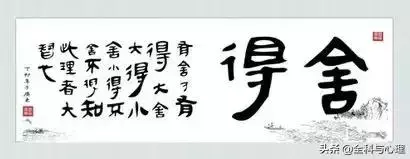 舍得
有舍乃有
得大舍
大得小
舍小得不
舍不得知
此理者大
智也
头条 @金科与心理